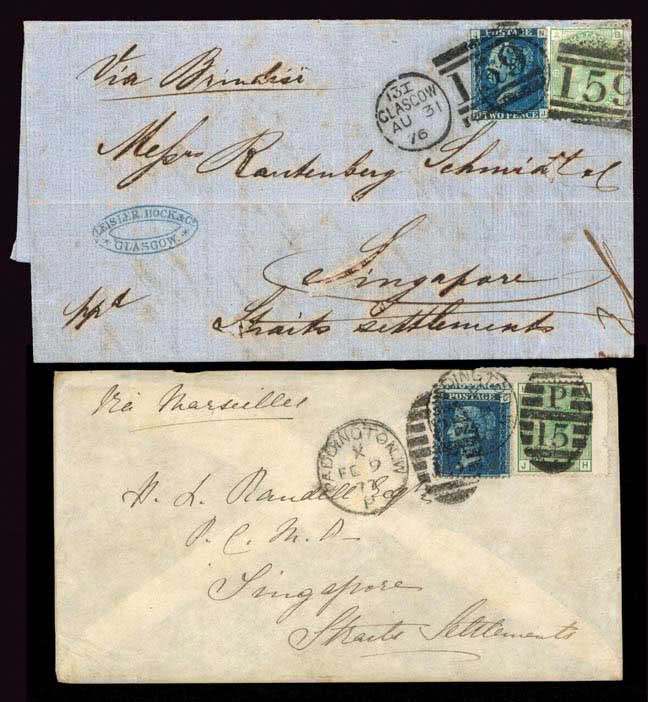 Via Brindisi
13I
GLASGOW
AU 31
76
159
POSTAGE
TWO PENCE
159
Messrs Rautenberg Schmidt & C
LEISLER, BOCK & Co
GLASGOW.
Singapore
Straits Settlements
ppd
Via Marseilles
PADDINGTON.W
X
FE 9
P
POSTAGE
P
15
J H
H. L. Randell Esqr
P. C. M. O
Singapore
Straits Settlements